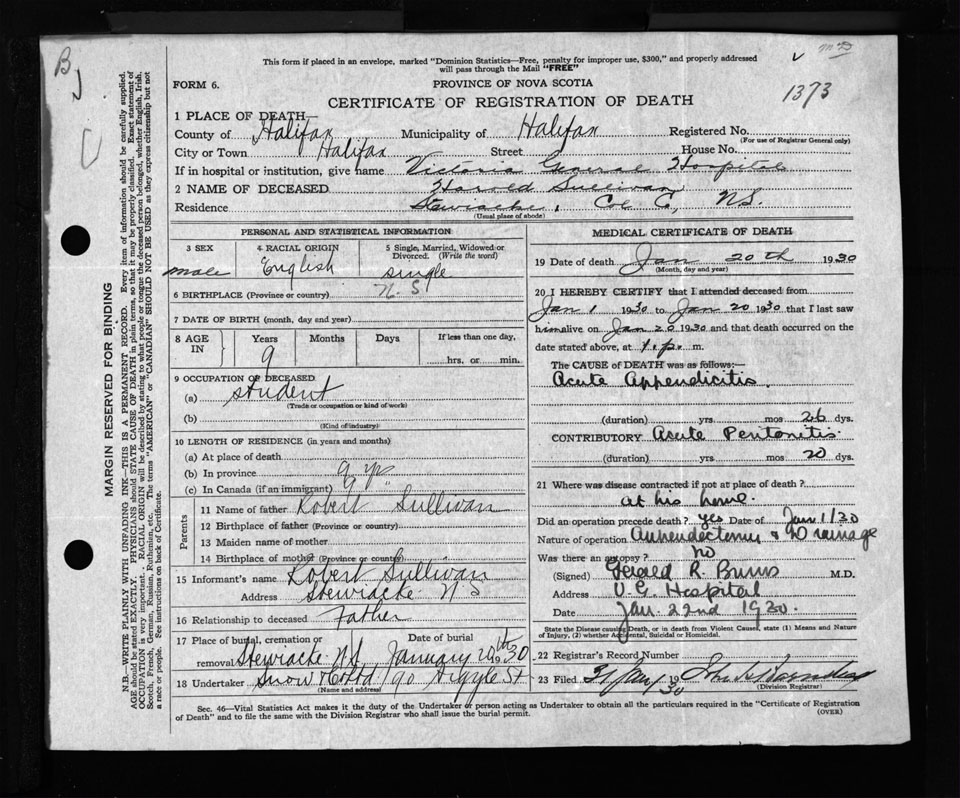 B
J
C
MARGIN RESERVED FOR BINDING
N.B.—WRITE PLAINLY WITH UNFADING INK—THIS IS A PERMANENT RECORD. Every item of information should be carefully supplied.
AGE should be stated EXACTLY. PHYSICIANS should STATE CAUSE OF DEATH in plain terms, so that it may be properly classified. Exact statement of
OCCUPATION is very important. RACIAL ORIGIN will be described by stating to what people or tongue the deceased person belonged, whether English, Irish,
Scotch, French, German, Russian, Ruthenian, etc. The terms "AMERICAN" or "CANADIAN" SHOULD NOT BE USED as they express citizenship but not
a race or people. See instructions on back of Certificate.
This form if placed in an envelope, marked "Dominion Statistics—Free, penalty for improper use, $300," and properly addressed
will pass through the Mail "FREE"
FORM 6.
PROVINCE OF NOVA SCOTIA
CERTIFICATE OF REGISTRATION OF DEATH
1373
1 PLACE OF DEATH
County of Halifax Municipality of Halifax Registered No.
(For use of Registrar General only)
City or Town Halifax Street House No.
If in hospital or institution, give name Victoria General Hospital
2 NAME OF DECEASED Harold Sullivan
Residence Stewiacke, Col C, N.S.
(Usual place of abode)
PERSONAL AND STATISTICAL INFORMATION
3 SEX male
4 RACIAL ORIGIN English
5 Single, Married, Widowed or Divorced. (Write the word) single
6 BIRTHPLACE (Province or country) N. S
7 DATE OF BIRTH (month, day and year)
8 AGE IN Years Months Days If less than one day,
9 hrs. or min.
9 OCCUPATION OF DECEASED
(a) student
(Trade or occupation or kind of work)
(b)
(Kind of industry)
10 LENGTH OF RESIDENCE (in years and months)
(a) At place of death
(b) In province 9 yrs
(c) In Canada (if an immigrant) 9 "
Parents
11 Name of father Robert Sullivan
12 Birthplace of father (Province or country)
13 Maiden name of mother
14 Birthplace of mother (Province or country)
15 Informant's name Robert Sullivan
Address Stewiacke N S
16 Relationship to deceased Father
17 Place of burial, cremation or removal Stewiacke N.S. Date of burial January 20th 1930
18 Undertaker Snow & Co Ltd 90 Argyle St
(Name and address)
MEDICAL CERTIFICATE OF DEATH
19 Date of death Jan 20th 1930
(Month, day and year)
20 I HEREBY CERTIFY that I attended deceased from
Jan 1 1930 to Jan 20 1930 that I last saw
him alive on Jan 20 1930 and that death occurred on the
date stated above, at 1.p. m.
The CAUSE of DEATH was as follows:
Acute Appendicitis.
(duration) yrs mos 26 dys.
CONTRIBUTORY Acute Peritonitis
(duration) yrs. mos 20 dys.
21 Where was disease contracted if not at place of death?
at his home.
Did an operation precede death? yes Date of Jan 1/30
Nature of operation Appendectomy & Drainage
Was there an autopsy? no
(Signed) Gerald R. Burns M.D.
Address V.G. Hospital
Date Jan. 22nd 1930.
State the Disease causing Death, or in death from Violent Causes, state (1) Means and Nature
of Injury, (2) whether Accidental, Suicidal or Homicidal.
22 Registrar's Record Number
23 Filed 31 Jan 1930 John
(Division Registrar)
Sec. 46—Vital Statistics Act makes it the duty of the Undertaker or person acting as Undertaker to obtain all the particulars required in the "Certificate of Registration
of Death" and to file the same with the Division Registrar who shall issue the burial permit.
(OVER)